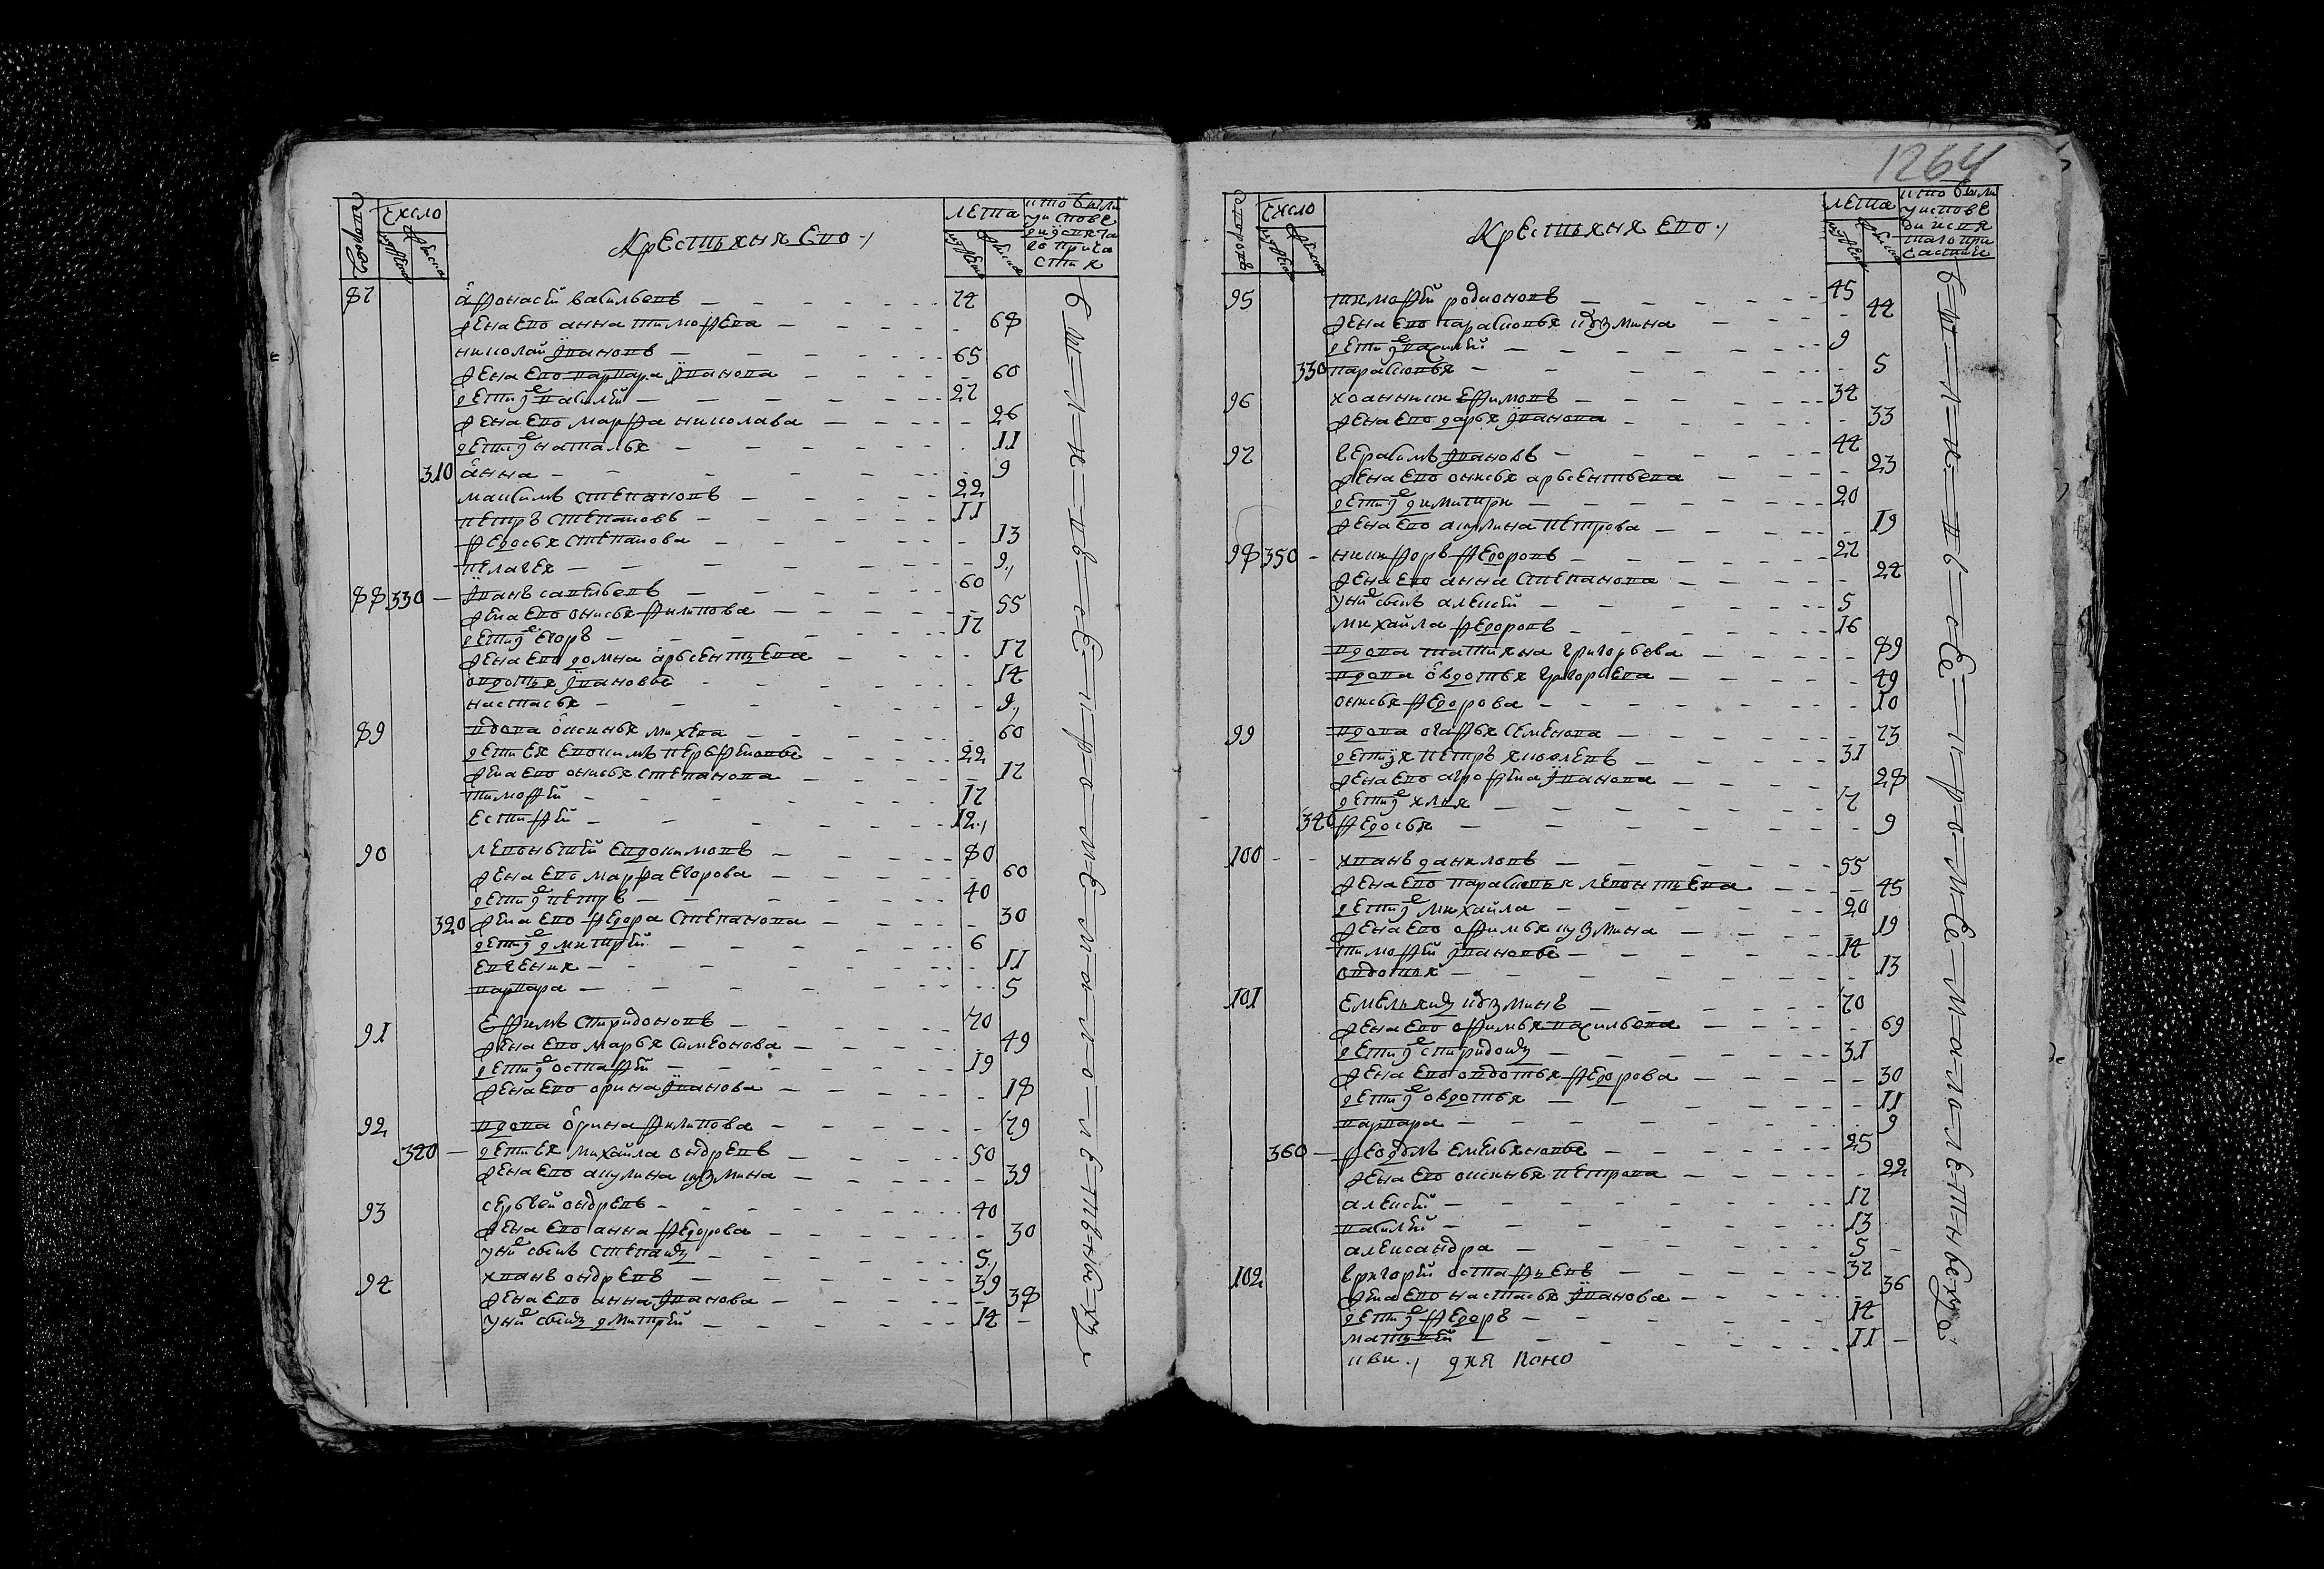 1264
число
Крестьяня Ево
лета
кто были
у испове
ди и свята
го прича
стия
87 афонасей васильевъ 74
жена ево анна тимофева 68
николай ивановъ 65
жена ево варвара иванова 60
дети их василей 27
жена ево марфа николава 26
дети их наталья 11
310 анна 9
максимъ степановъ 22
петръ степановъ 11
федосья степанова 13
пелагея 9
88 330 иванъ савельевъ 60
жена ево онисья филипова 55
дети их егоръ 17
жена ево домна арьсентьева 17
овдотья ивановы 14
настасья 9
89 вдова оксинья михева 60
дети ея евдокимъ перьфеновы 22
жена ево онисья степанова 17
тимофей 17
естифей 12
90 левоньтей евдокимовъ 80
жена ево марфа егорова 60
дети их петръ 40
320 жена ево федора степанова 30
дети их дмитрей 6
евгения 11
варвара 5
91 ефимъ спиридоновъ 70
жена ево марья симеонова 49
дети их остафей 19
жена ево орина иванова 18
92 вдова орина филипова 79
320 дети ея михайла ондревъ 50
жена ево акулина кузмина 39
93 сергей ондревъ 40
жена ево анна федорова 30
у них сынъ степанъ 5
94 иванъ ондревъ 39
жена ево анна иванова 38
у них сынъ дмитрей 14
число
Крестьяня Ево
лета
кто были
у испове
ди и свя
таго при
частия
95 тимофей родионовъ 45
жена ево парасковья кузмина 44
дети их василей 9
330 парасковья 5
96 иоанникъ ефимовъ 34
жена ево дарья иванова 33
97 герасимъ ивановъ 44
жена ево онисья арьсентьева 23
дети их димитри 20
жена ево акулина петрова 19
98 350 никифоръ федоровъ 27
жена ево анна степанова 24
у них сынъ алексей 5
михайла федоровъ 16
вдова татияна григорьева 89
вдова овдотья григорьева 49
онисья федорова 10
99 вдова огафья семенова 73
дети ея петръ яковлевъ 31
жена ево агрофена иванова 28
дети их илья 7
340 федосья 9
100 иванъ даниловъ 55
жена ево парасковья левонтьева 45
дети их михайла 20
жена ево офимья кузмина 19
тимофей ивановы 14
овдотья 13
101 емельянъ кузминъ 70
жена ево офимья васильева 69
дети их спиридонъ 31
жена ево овдотья федорова 30
дети их овдотья 11
варвара 9
360 феодоръ емельяновы 25
жена ево оксинья петрова 22
алексей 17
василей 13
александра 5
102 григорей остафиевъ 37
жена ево настасья иванова 36
дети их федоръ 14
матвей 11